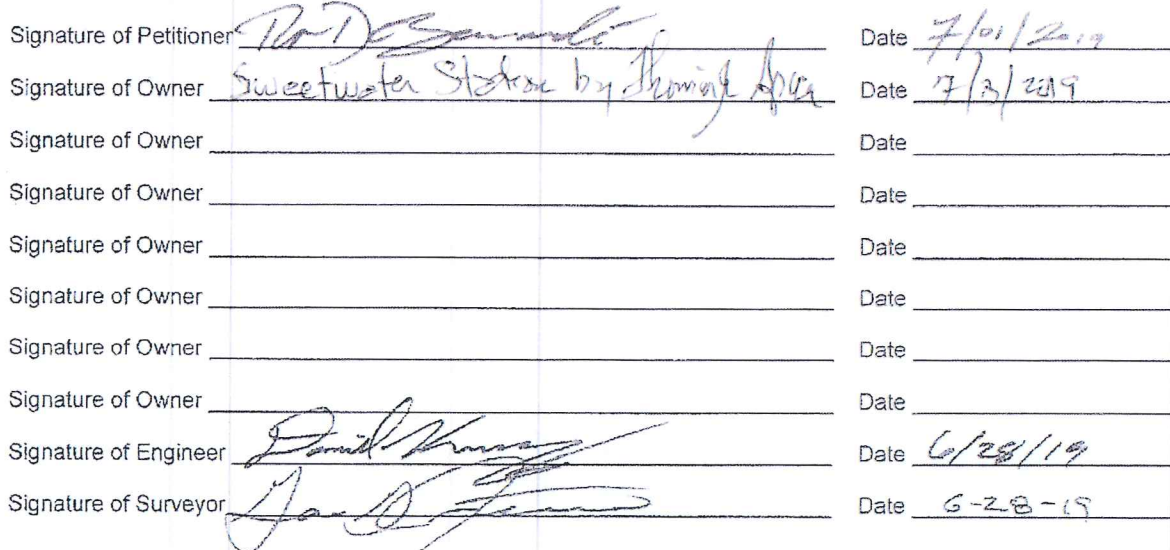 Signature of Petitioner Date 7/01/2019
Signature of Owner Sweetwater Station by Date 7/3/2019
Signature of Owner Date
Signature of Owner Date
Signature of Owner Date
Signature of Owner Date
Signature of Owner Date
Signature of Owner Date
Signature of Engineer Daniel Date 6/28/19
Signature of Surveyor Date 6-28-19